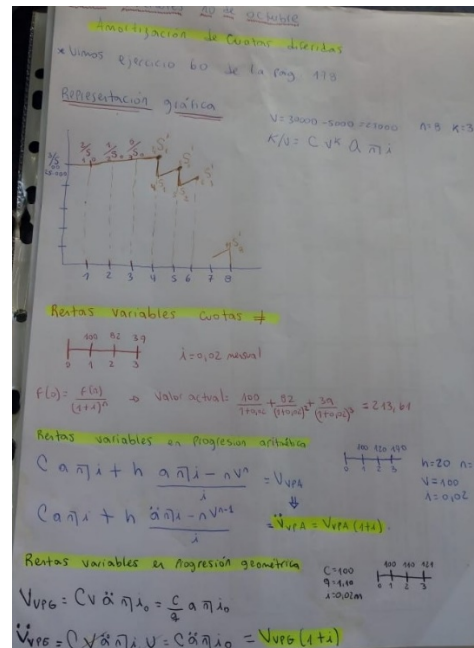 10 de octubre
Amortización de Cuotas diferidas
* Vimos ejercicio 60 de la pag 118
Representación gráfica
n=8 k=3
K/V = C V^k a n̅|i
1 2 3 4 5 6 7 8
Rentas variables Cuotas ≠
100 82 39
0 1 2 3
i=0,02 mensual
F(0) = F(n)/(1+i)^n → Valor actual = 100/(1+0,02) + 82/(1+0,02)^2 + 39/(1+0,02)^3 = 213,61
Rentas variables en Progresion aritmética
C a n̅|i + h (a n̅|i - nV^n)/i = V VPA
100 120 140
0 1 2 3
h=20 n=
V=100
i=0,02
C a n̅|i + h (ä n̅|i - nV^n-1)/i = V̈ VPA = V VPA (1+i)
Rentas variables en Progresión geométrica
C=100
q=1,10
i=0,02m
100 110 121
0 1 2 3
V VPG = C V ä n̅|i₀ = C/q a n̅|i₀
V̈ VPG = C V ä n̅|i U = C ä n̅|i₀ = V VPG (1+i)